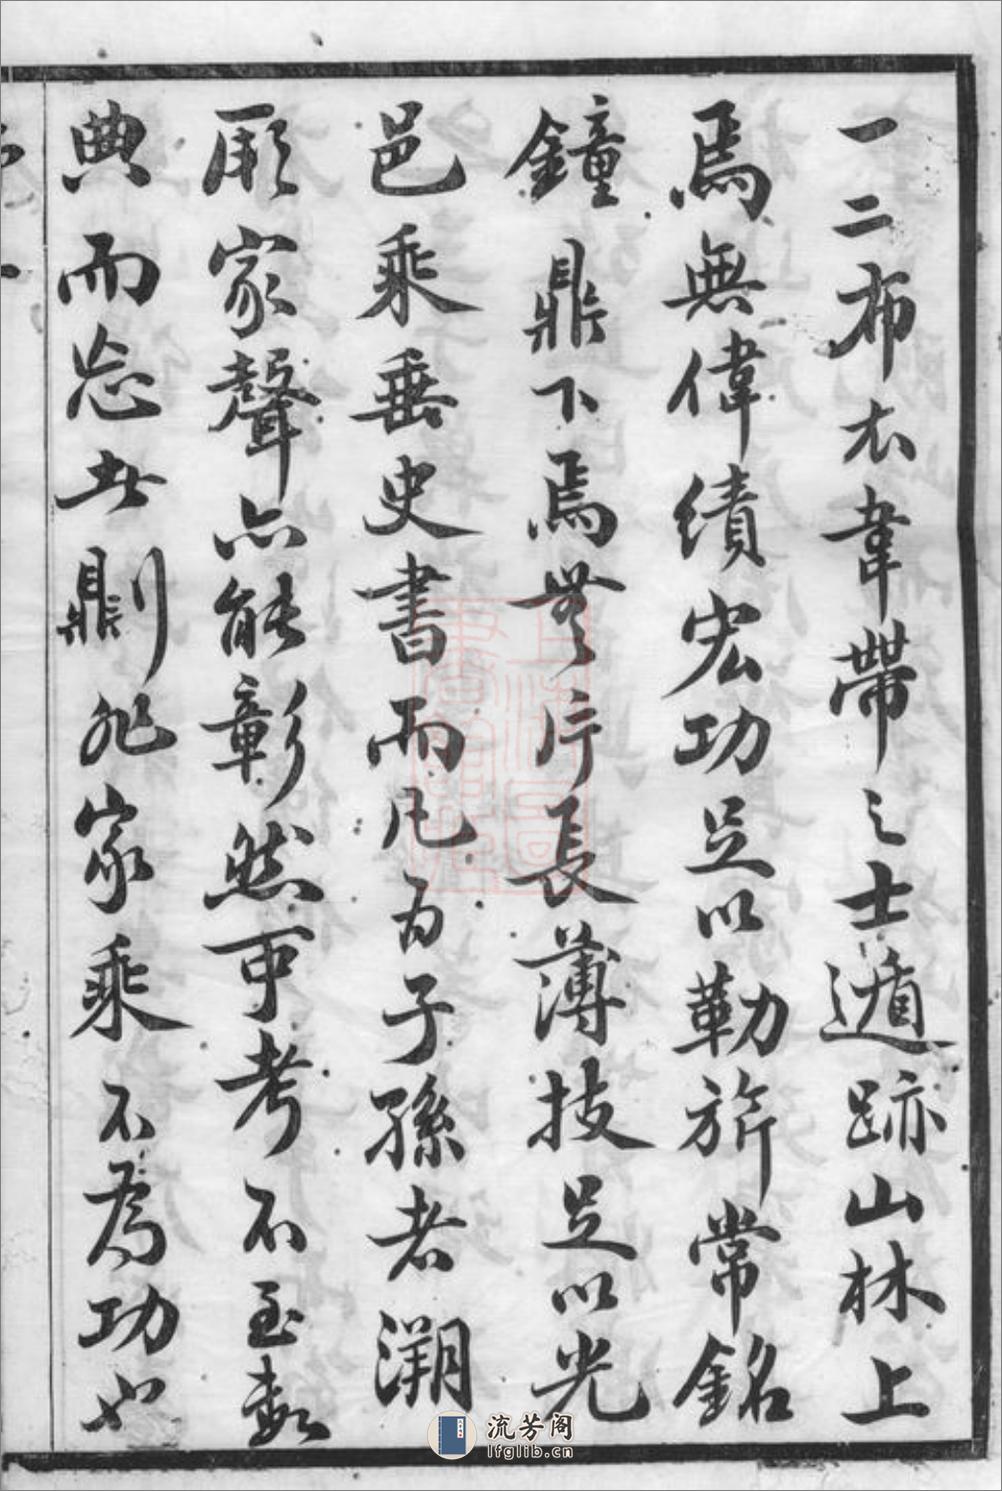 一二布衣韋帶之士遁跡山林上
焉無偉績宏功足以勒旂常銘
鐘鼎下焉無片長薄技足以光
邑乘垂史書而凡為子孫者溯
厥家聲亦能彰彰然可考不至數
典而忘此則非家乘不為功也
流芳阁
lfglib.cn